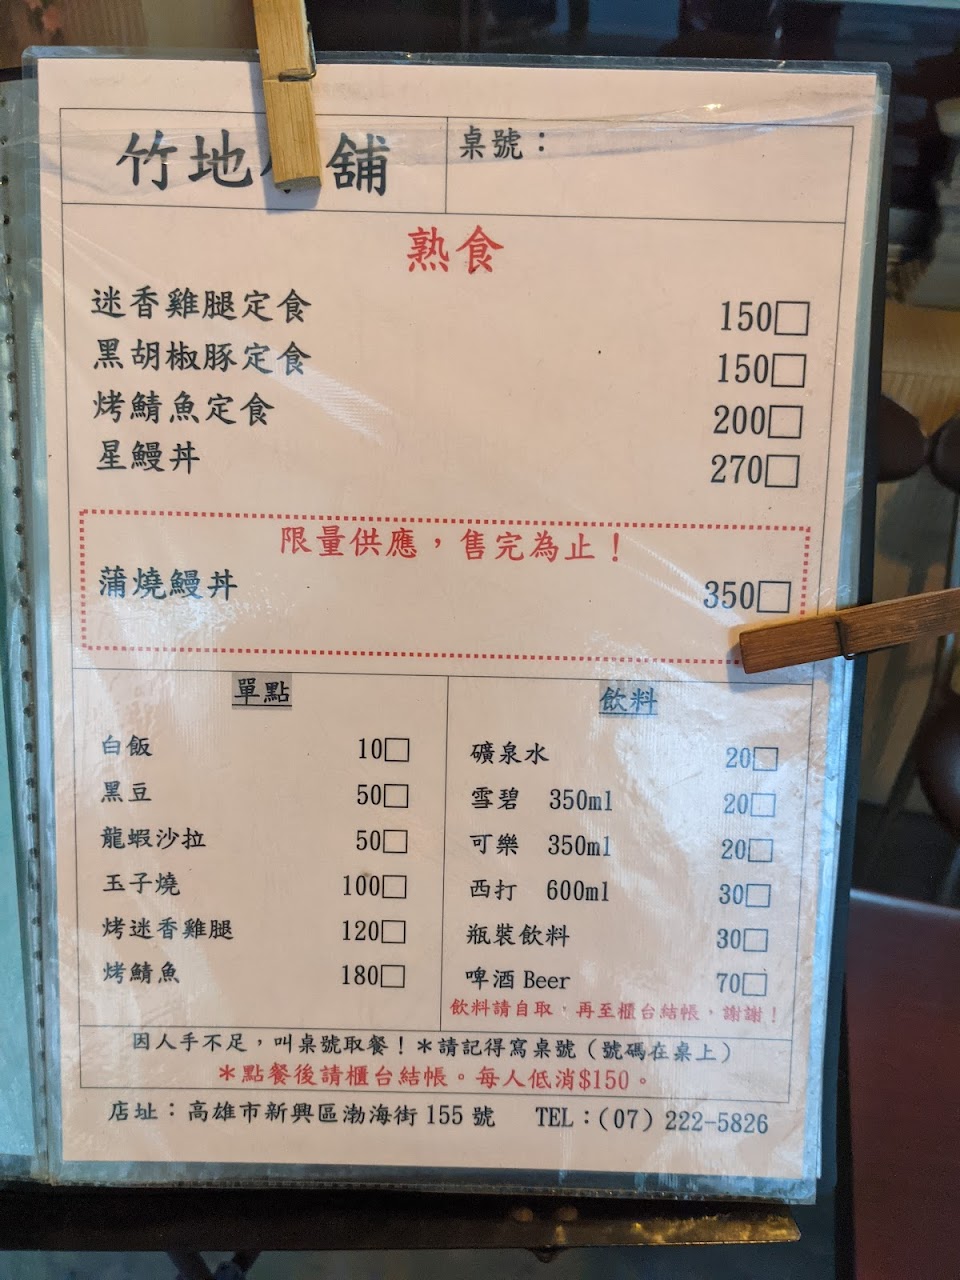 竹地 舖
桌號：
熟食
迷香雞腿定食 150□
黑胡椒豚定食 150□
烤鯖魚定食 200□
星鰻丼 270□
限量供應，售完為止！
蒲燒鰻丼 350□
單點
白飯 10□
黑豆 50□
龍蝦沙拉 50□
玉子燒 100□
烤迷香雞腿 120□
烤鯖魚 180□
飲料
礦泉水 20□
雪碧 350ml 20□
可樂 350ml 20□
西打 600ml 30□
瓶裝飲料 30□
啤酒 Beer 70□
飲料請自取，再至櫃台結帳，謝謝！
因人手不足，叫桌號取餐！＊請記得寫桌號（號碼在桌上）
＊點餐後請櫃台結帳。每人低消$150。
店址：高雄市新興區渤海街 155 號 TEL：(07) 222-5826